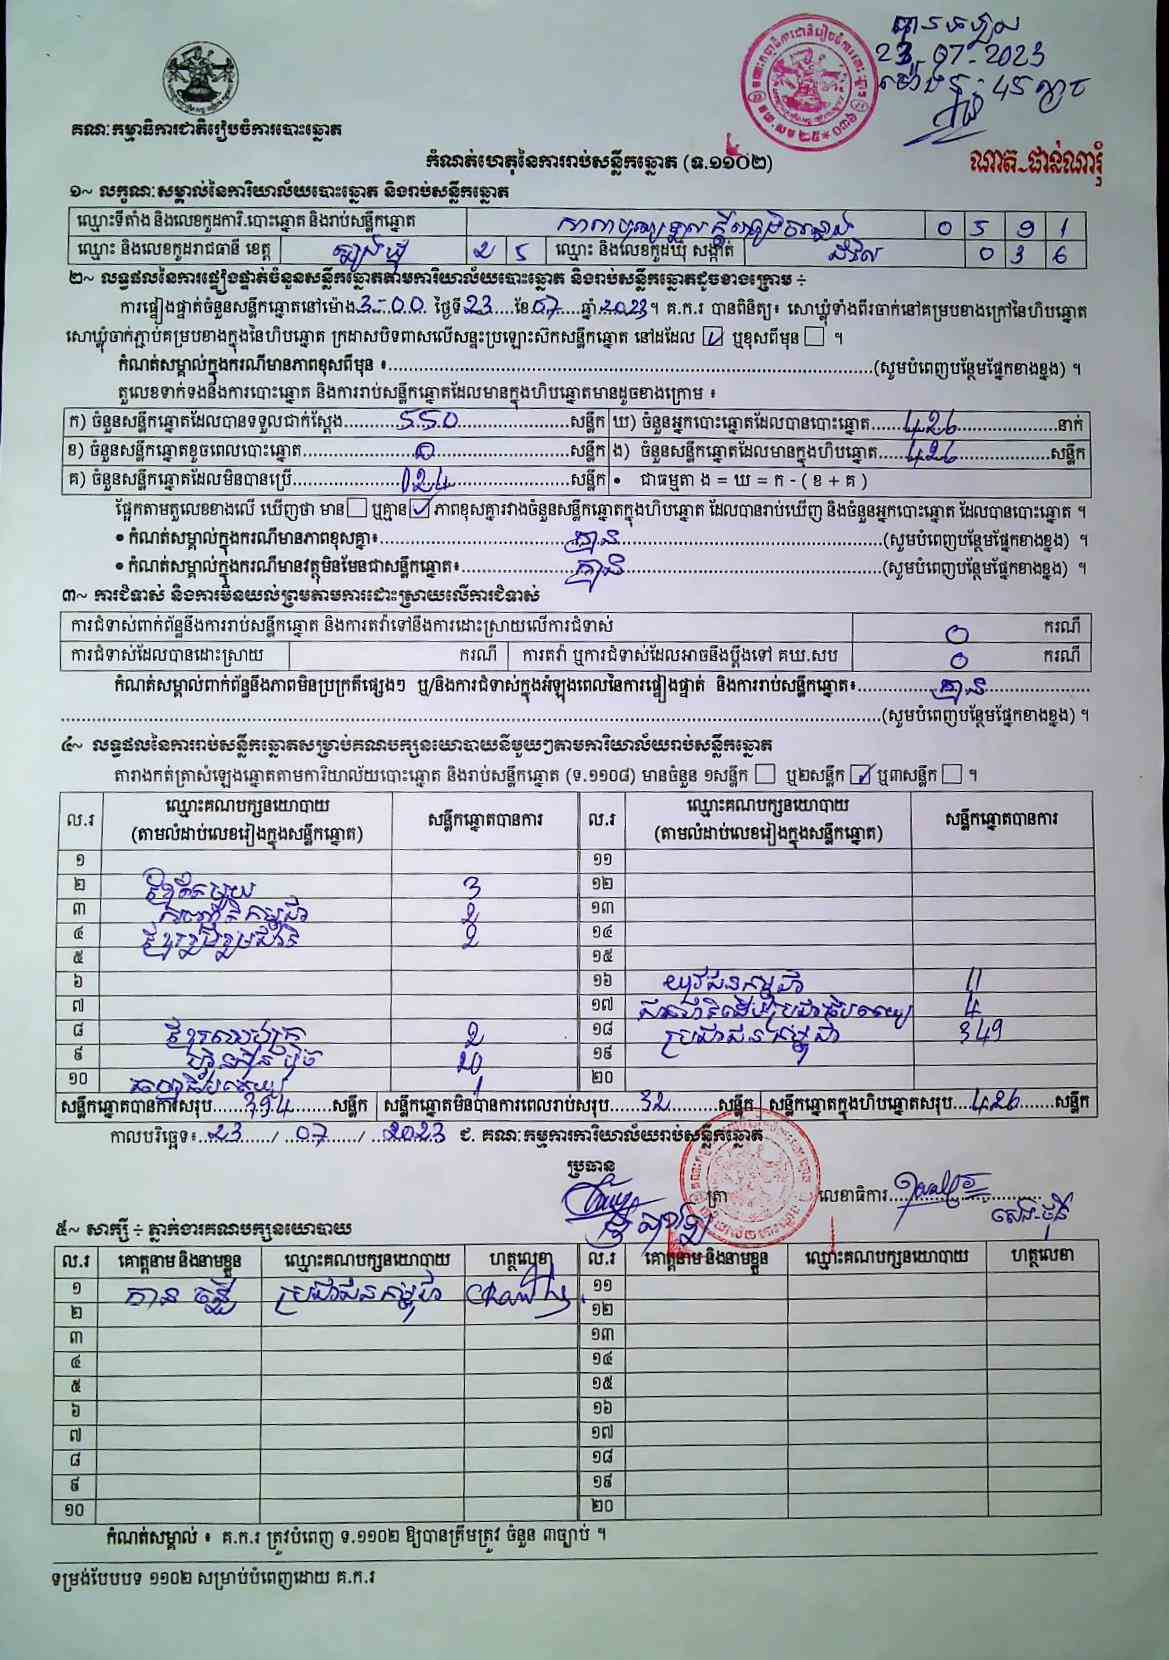 បានទទួល
23.07.2023
គណៈកម្មាធិការជាតិរៀបចំការបោះឆ្នោត
កំណត់ហេតុនៃការរាប់សន្លឹកឆ្នោត (ទ.១១០២)
ណាត.ផាន់ណារុំ
១~ លក្ខណៈសម្គាល់នៃការិយាល័យបោះឆ្នោត និងរាប់សន្លឹកឆ្នោត
ឈ្មោះទីតាំង និងលេខកូដការិ.បោះឆ្នោត និងរាប់សន្លឹកឆ្នោត 0 5 9 1
ឈ្មោះ និងលេខកូដរាជធានី ខេត្ត ត្បូងឃ្មុំ 2 5 ឈ្មោះ និងលេខកូដឃុំ សង្កាត់ 0 3 6
២~ លទ្ធផលនៃការផ្ទៀងផ្ទាត់ចំនួនសន្លឹកឆ្នោតតាមការិយាល័យបោះឆ្នោត និងរាប់សន្លឹកឆ្នោតដូចខាងក្រោម ÷
ការផ្ទៀងផ្ទាត់ចំនួនសន្លឹកឆ្នោតនៅម៉ោង 3-00 ថ្ងៃទី 23 ខែ 07 ឆ្នាំ 2023។ គ.ក.រ បានពិនិត្យ៖ សោឃ្លុំទាំងពីរចាក់នៅគម្របខាងក្រៅនៃហិបឆ្នោត
សោឃ្លុំចាក់ភ្ជាប់គម្របខាងក្នុងនៃហិបឆ្នោត ក្រដាសបិទពាសលើសន្ទះប្រឡោះស៊កសន្លឹកឆ្នោត នៅដដែល ☑ ឬខុសពីមុន ☐ ។
កំណត់សម្គាល់ក្នុងករណីមានភាពខុសពីមុន ៖ (សូមបំពេញបន្ថែមផ្នែកខាងខ្នង) ។
តួលេខទាក់ទងនឹងការបោះឆ្នោត និងការរាប់សន្លឹកឆ្នោតដែលមានក្នុងហិបឆ្នោតមានដូចខាងក្រោម ៖
ក) ចំនួនសន្លឹកឆ្នោតដែលបានទទួលជាក់ស្តែង 550 សន្លឹក ឃ) ចំនួនអ្នកបោះឆ្នោតដែលបានបោះឆ្នោត 426 នាក់
ខ) ចំនួនសន្លឹកឆ្នោតខូចពេលបោះឆ្នោត 0 សន្លឹក ង) ចំនួនសន្លឹកឆ្នោតដែលមានក្នុងហិបឆ្នោត 426 សន្លឹក
គ) ចំនួនសន្លឹកឆ្នោតដែលមិនបានប្រើ 124 សន្លឹក • ជាធម្មតា ង = ឃ = ក - ( ខ + គ )
ផ្អែកតាមតួលេខខាងលើ ឃើញថា មាន ☐ ឬគ្មាន ☑ ភាពខុសគ្នារវាងចំនួនសន្លឹកឆ្នោតក្នុងហិបឆ្នោត ដែលបានរាប់ឃើញ និងចំនួនអ្នកបោះឆ្នោត ដែលបានបោះឆ្នោត ។
• កំណត់សម្គាល់ក្នុងករណីមានភាពខុសគ្នា៖ គ្មាន (សូមបំពេញបន្ថែមផ្នែកខាងខ្នង) ។
• កំណត់សម្គាល់ក្នុងករណីមានវត្ថុមិនមែនជាសន្លឹកឆ្នោត៖ គ្មាន (សូមបំពេញបន្ថែមផ្នែកខាងខ្នង) ។
៣~ ការជំទាស់ និងការមិនយល់ព្រមតាមការដោះស្រាយលើការជំទាស់
ការជំទាស់ពាក់ព័ន្ធនឹងការរាប់សន្លឹកឆ្នោត និងការតវ៉ាទៅនឹងការដោះស្រាយលើការជំទាស់ 0 ករណី
ការជំទាស់ដែលបានដោះស្រាយ ករណី ការតវ៉ា ឬការជំទាស់ដែលអាចនឹងប្តឹងទៅ គឃ.សប 0 ករណី
កំណត់សម្គាល់ពាក់ព័ន្ធនឹងភាពមិនប្រក្រតីផ្សេងៗ ឬ/និងការជំទាស់ក្នុងអំឡុងពេលនៃការផ្ទៀងផ្ទាត់ និងការរាប់សន្លឹកឆ្នោត៖ គ្មាន
(សូមបំពេញបន្ថែមផ្នែកខាងខ្នង) ។
៤~ លទ្ធផលនៃការរាប់សន្លឹកឆ្នោតសម្រាប់គណបក្សនយោបាយនីមួយៗតាមការិយាល័យរាប់សន្លឹកឆ្នោត
តារាងកត់ត្រាសំឡេងឆ្នោតតាមការិយាល័យបោះឆ្នោត និងរាប់សន្លឹកឆ្នោត (ទ.១១០៨) មានចំនួន ១សន្លឹក ☐ ឬ២សន្លឹក ☑ ឬ៣សន្លឹក ☐ ។
ល.រ ឈ្មោះគណបក្សនយោបាយ (តាមលំដាប់លេខរៀងក្នុងសន្លឹកឆ្នោត) សន្លឹកឆ្នោតបានការ ល.រ ឈ្មោះគណបក្សនយោបាយ (តាមលំដាប់លេខរៀងក្នុងសន្លឹកឆ្នោត) សន្លឹកឆ្នោតបានការ
១ ១១
២ ខ្មែរតែមួយ 3 ១២
៣ 2 ១៣
៤ ខ្មែររួបរួមជាតិ 2 ១៤
៥ ១៥
៦ ១៦ យុវជនកម្ពុជា 11
៧ ១៧ 4
៨ 2 ១៨ ប្រជាជនកម្ពុជា 349
៩ ហ៊្វុនស៊ិនប៉ិច 20 ១៩
១០ 1 ២០
សន្លឹកឆ្នោតបានការសរុប 394 សន្លឹក សន្លឹកឆ្នោតមិនបានការពេលរាប់សរុប 32 សន្លឹក សន្លឹកឆ្នោតក្នុងហិបឆ្នោតសរុប 426 សន្លឹក
កាលបរិច្ឆេទ៖ 23 / 07 / 2023 ជ. គណៈកម្មការការិយាល័យរាប់សន្លឹកឆ្នោត
ប្រធាន
ត្រា លេខាធិការ
៥~ សាក្សី ~ ភ្នាក់ងារគណបក្សនយោបាយ
ល.រ គោត្តនាម និងនាមខ្លួន ឈ្មោះគណបក្សនយោបាយ ហត្ថលេខា ល.រ គោត្តនាម និងនាមខ្លួន ឈ្មោះគណបក្សនយោបាយ ហត្ថលេខា
១ ប្រជាជនកម្ពុជា ១១
២ ១២
៣ ១៣
៤ ១៤
៥ ១៥
៦ ១៦
៧ ១៧
៨ ១៨
៩ ១៩
១០ ២០
កំណត់សម្គាល់ ៖ គ.ក.រ ត្រូវបំពេញ ទ.១១០២ ឱ្យបានត្រឹមត្រូវ ចំនួន ៣ច្បាប់ ។
ទម្រង់បែបបទ ១១០២ សម្រាប់បំពេញដោយ គ.ក.រ